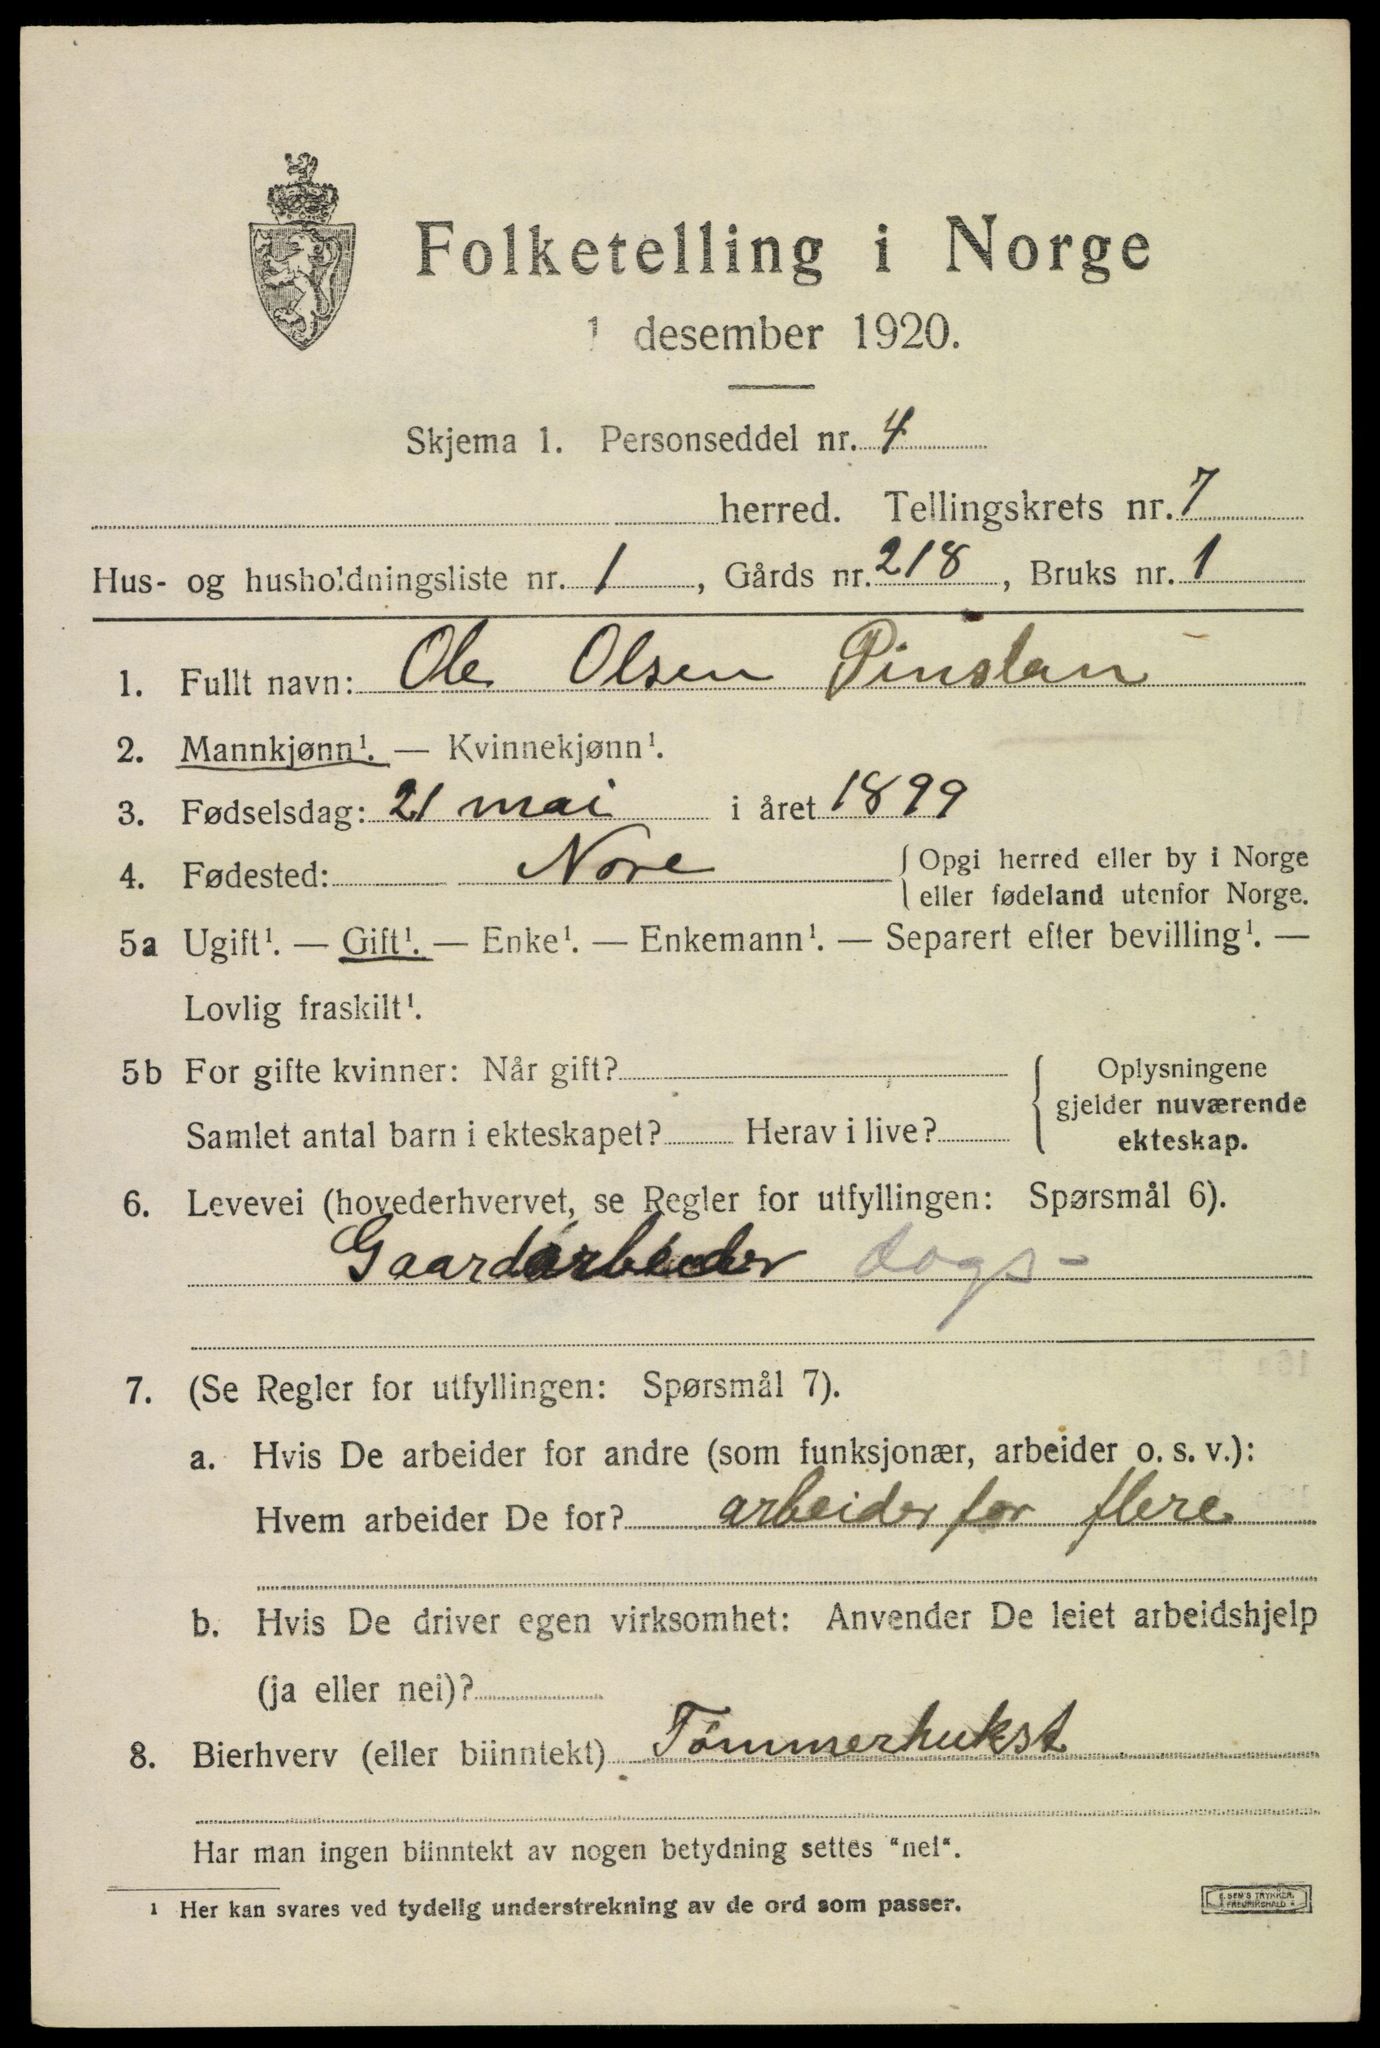 Folketelling i Norge
1 desember 1920.
Skjema 1. Personseddel nr. 4
herred. Tellingskrets nr. 7
Hus- og husholdningsliste nr. 1, Gårds nr. 218, Bruks nr. 1
1. Fullt navn: Ole Olsen Pinslan
2. Mannkjønn¹. — Kvinnekjønn¹.
3. Fødselsdag: 21 mai i året 1899
4. Fødested: Nore { Opgi herred eller by i Norge
eller fødeland utenfor Norge.
5a Ugift¹. — Gift¹. — Enke¹. — Enkemann¹. — Separert efter bevilling¹. —
Lovlig fraskilt¹.
5b For gifte kvinner: Når gift?
Samlet antal barn i ekteskapet? Herav i live?
{ Oplysningene
gjelder nuværende
ekteskap.
6. Levevei (hovederhvervet, se Regler for utfyllingen: Spørsmål 6).
Gaardarbeider dags-
7. (Se Regler for utfyllingen: Spørsmål 7).
a. Hvis De arbeider for andre (som funksjonær, arbeider o. s. v.):
Hvem arbeider De for? arbeider for flere
b. Hvis De driver egen virksomhet: Anvender De leiet arbeidshjelp
(ja eller nei)?
8. Bierhverv (eller biinntekt) Tømmerhukst
Har man ingen biinntekt av nogen betydning settes "nei".
¹ Her kan svares ved tydelig understrekning av de ord som passer.